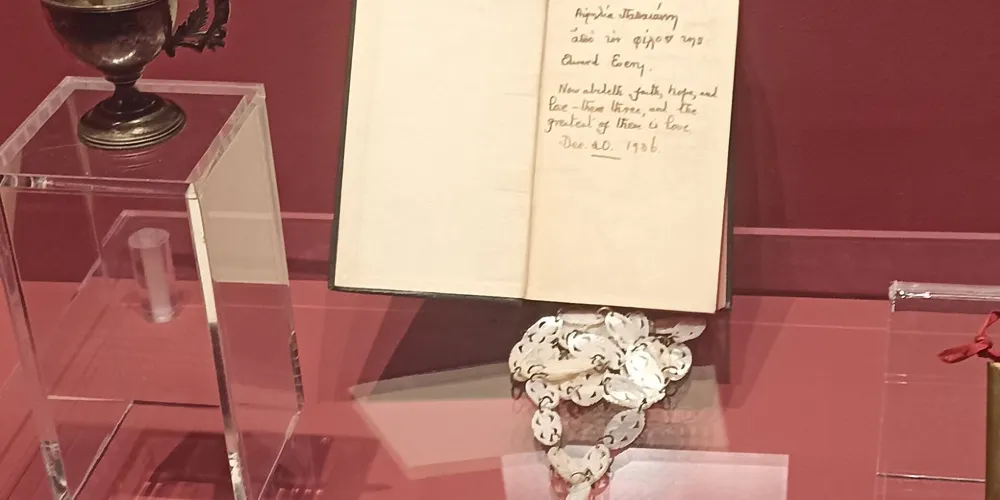 ἀπὸ τὸν φίλον της
Edward Every.
Now abideth faith, hope, and
love - these three, and the
greatest of them is love.
Dec. 20. 1936.